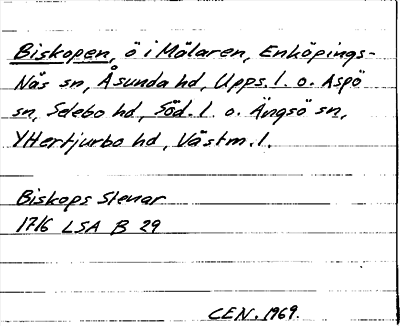 Biskopen, ö i Mälaren, Enköpings-
Näs sn, Åsunda hd, Upps. l. o. Aspö
sn, Selebo hd, Söd. l. o. Ängsö sn,
Yttertjurbo hd, Västm. l.
Biskops Stenar
1716 LSA B 29
CEN. 1969.